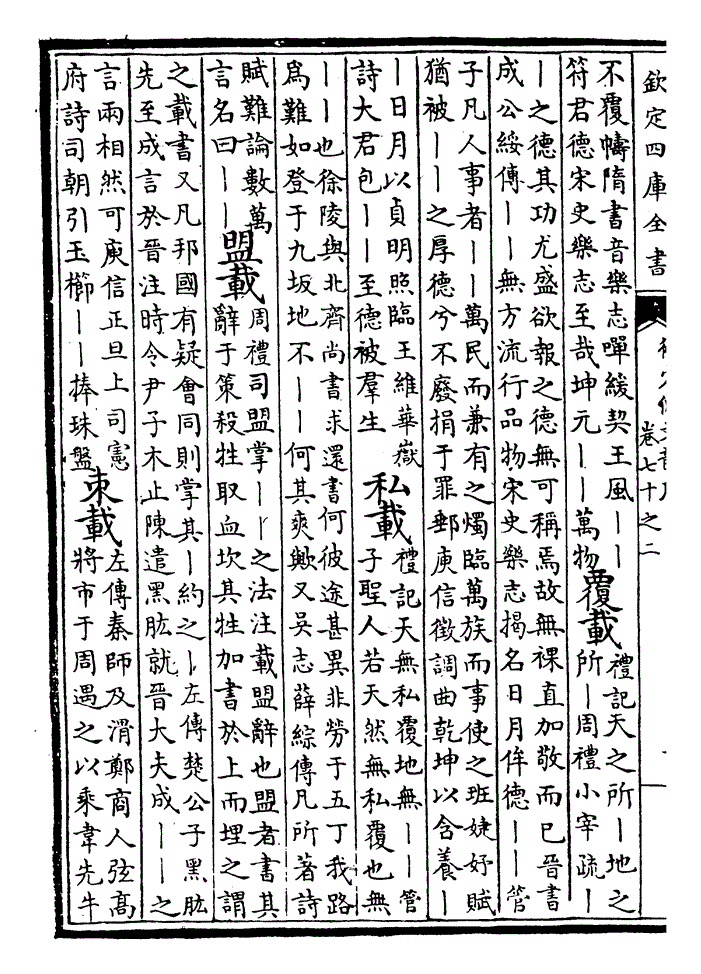 欽定四庫全書
卷七十之二
不覆幬隋書音樂志嘽緩契王風||
符君德宋史樂志至哉坤元||萬物
覆載
禮記天之所|地之
所|周禮小宰疏|
|之德其功尤盛欲報之德無可稱焉故無祼直加敬而已晉書
成公綏傳||無方流行品物宋史樂志揭名日月侔德||管
子凡人事者||萬民而兼有之燭臨萬族而事使之班婕妤賦
猶被||之厚德兮不廢捐于罪郵庾信徵調曲乾坤以含養|
|日月以貞明照臨王維華嶽
詩大君包||至德被羣生
私載
禮記天無私覆地無||管
子聖人若天然無私覆也無
||也徐陵與北齊尚書求還書何彼途甚異非勞于五丁我路
爲難如登于九坂地不||何其爽歟又吳志薛綜傳凡所著詩
賦難論數萬
言名曰||
盟載
周禮司盟掌||之法注載盟辭也盟者書其
辭于策殺牲取血坎其牲加書於上而埋之謂
之載書又凡邦國有疑會同則掌其|約之|左傳楚公子黑肱
先至成言於晉注時令尹子木止陳遣黑肱就晉大夫成||之
言兩相然可庾信正旦上司憲
府詩司朝引玉櫛||捧珠盤
束載
左傳秦師及滑鄭商人弦高
將市于周遇之以乘韋先牛